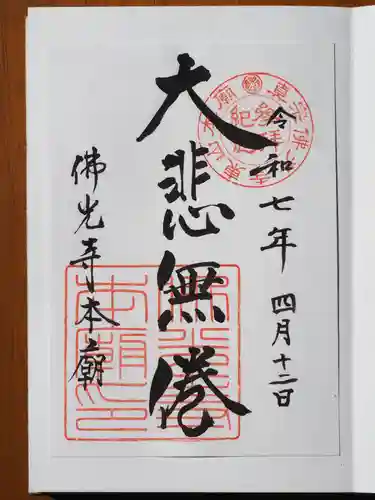 令和七年 四月十二日
大悲無倦
佛光寺本廟
参拝紀念